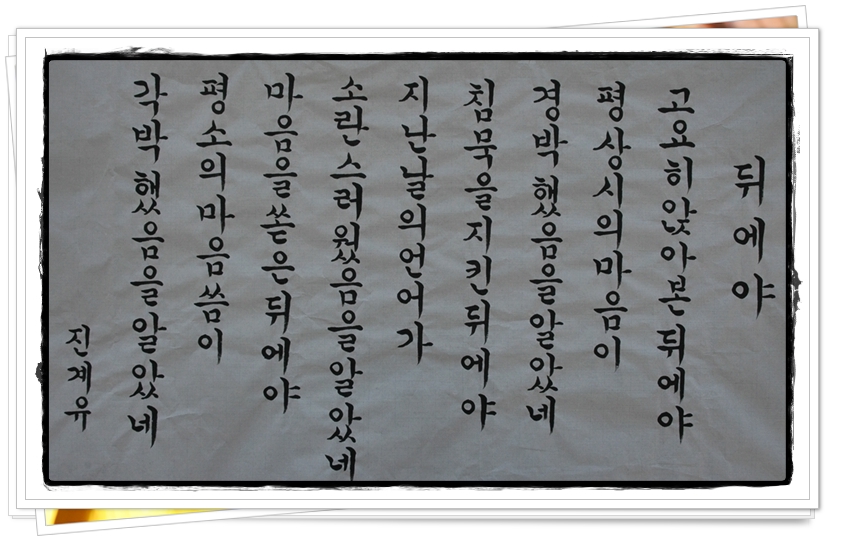 뒤에야
고요히앉아본뒤에야
평상시의마음이
경박했음을알았네
침묵을지킨뒤에야
지난날의언어가
소란스러웠음을알았네
마음을쏟은뒤에야
평소의마음씀이
각박했음을알았네
진계유